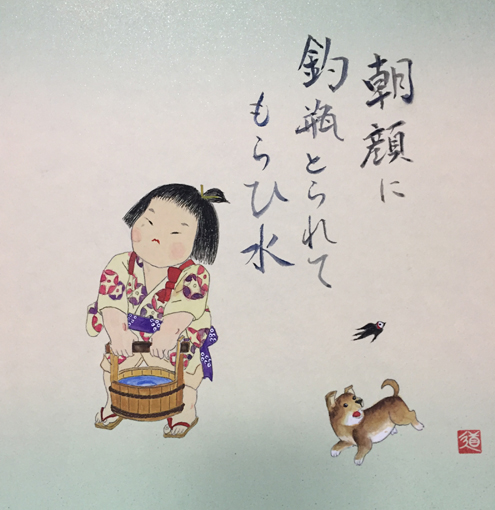 朝顔に
釣瓶とられて
もらひ水
道